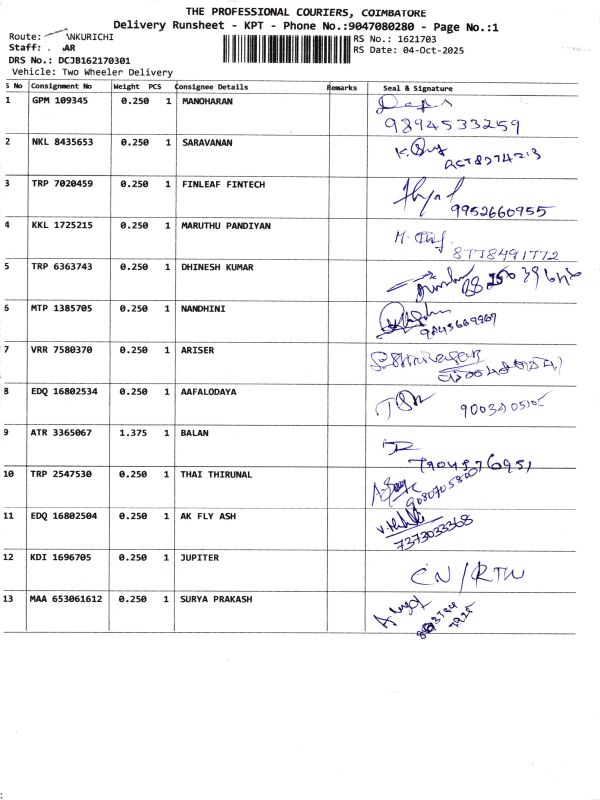 THE PROFESSIONAL COURIERS, COIMBATORE
Delivery Runsheet - KPT - Phone No.:9047080280 - Page No.:1
Route: ANKURICHI RS No.: 1621703
Staff: AR RS Date: 04-Oct-2025
DRS No.: DCJB162170301
Vehicle: Two Wheeler Delivery
S No Consignment No Weight PCS Consignee Details Remarks Seal & Signature
1 GPM 109345 0.250 1 MANOHARAN
9894533259
2 NKL 8435653 0.250 1 SARAVANAN
3 TRP 7020459 0.250 1 FINLEAF FINTECH
9952660955
4 KKL 1725215 0.250 1 MARUTHU PANDIYAN
8778491772
5 TRP 6363743 0.250 1 DHINESH KUMAR
6 MTP 1385705 0.250 1 NANDHINI
7 VRR 7580370 0.250 1 ARISER
8 EDQ 16802534 0.250 1 AAFALODAYA
9 ATR 3365067 1.375 1 BALAN
10 TRP 2547530 0.250 1 THAI THIRUNAL
9080705800
11 EDQ 16802504 0.250 1 AK FLY ASH
7373033368
12 KDI 1696705 0.250 1 JUPITER
CN/RTN
13 MAA 653061612 0.250 1 SURYA PRAKASH